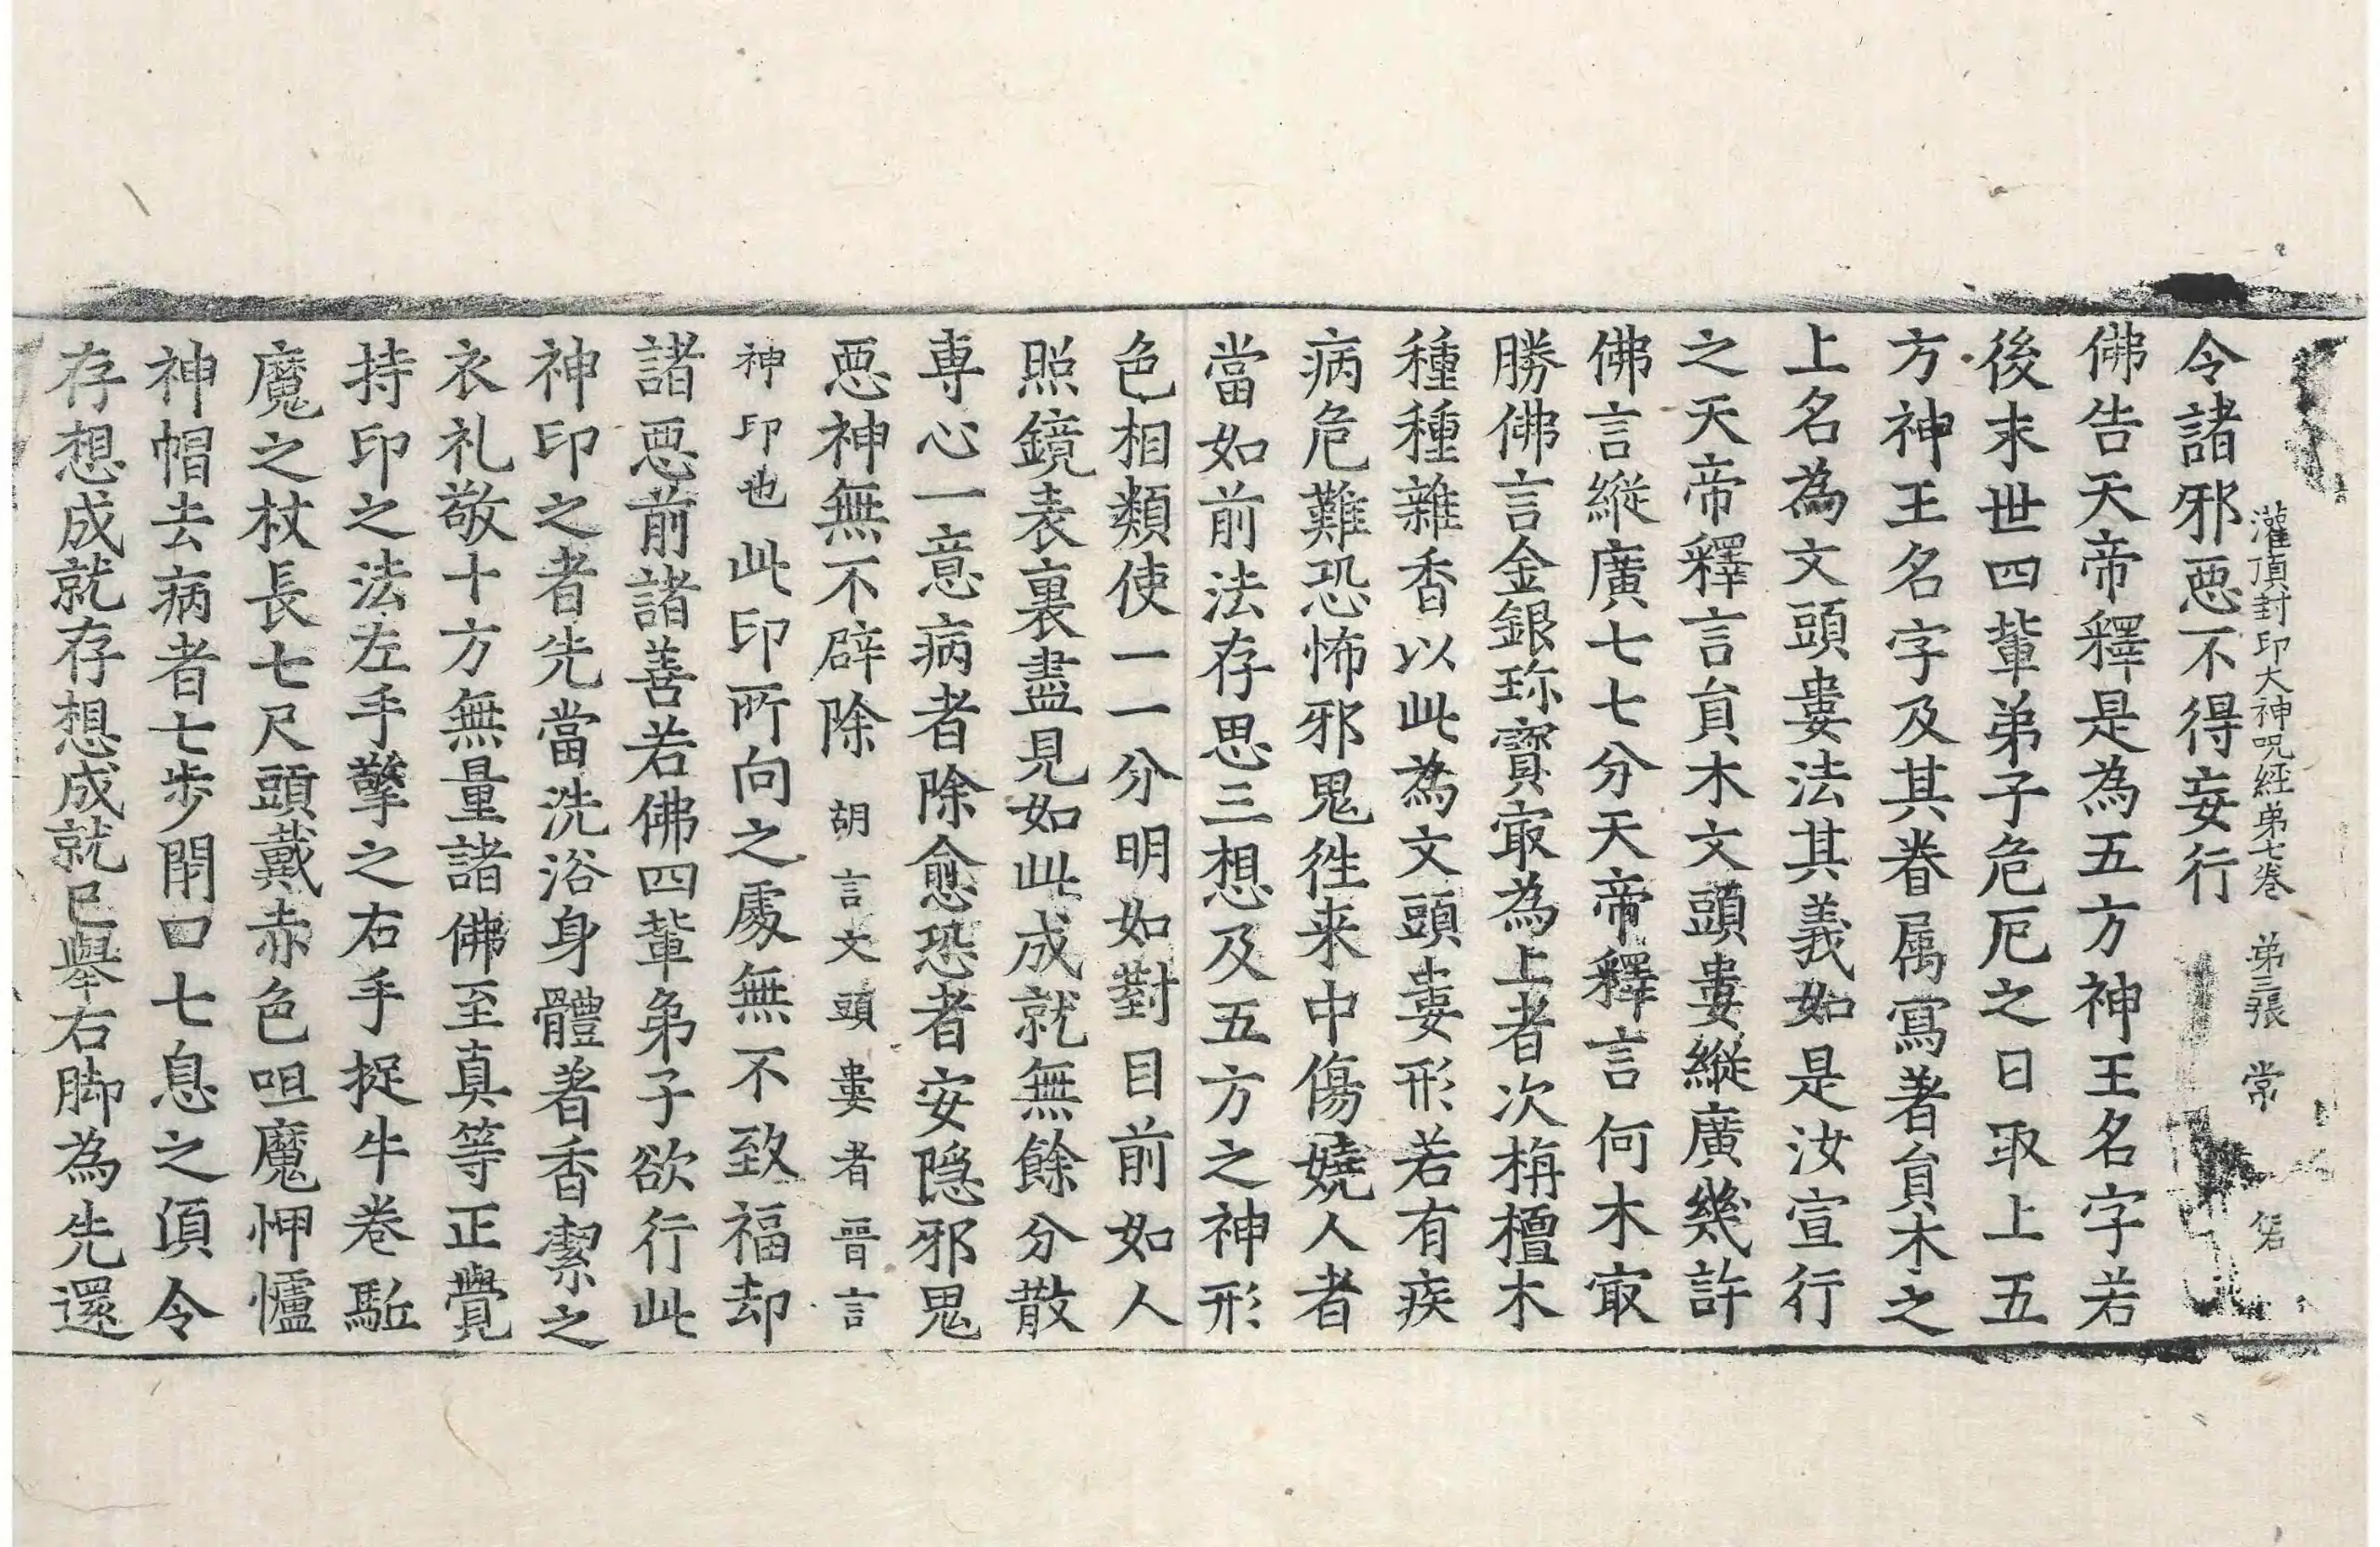 灌頂封印大神呪經弟七卷 弟三張 常
令諸邪惡不得妄行
佛告天帝釋是為五方神王名字若
後末世四輩弟子危厄之日取上五
方神王名字及其眷属寫著貟木之
上名為文頭婁法其義如是汝宣行
之天帝釋言貟木文頭婁縱廣幾許
佛言縱廣七七分天帝釋言何木㝡
勝佛言金銀珎寳㝡為上者次栴檀木
種種雜香以此為文頭婁形若有疾
病危難恐怖邪鬼徃来中傷嬈人者
當如前法存思三想及五方之神形
色相類使一一分明如對目前如人
照鏡表裏盡見如此成就無餘分散
專心一意病者除愈恐者安隱邪鬼
惡神無不辟除 胡言文頭婁者晉言
神印也 此印所向之處無不致福却
諸惡前諸善若佛四輩弟子欲行此
神印之者先當洗浴身體著香潔之
衣礼敬十方無量諸佛至真等正覺
持印之法左手擎之右手捉牛卷駈
魔之杖長七尺頭戴赤色呾魔㤉𢤱
神帽去病者七步閇口七息之湏令
存想成就存想成就已舉右脚為先還